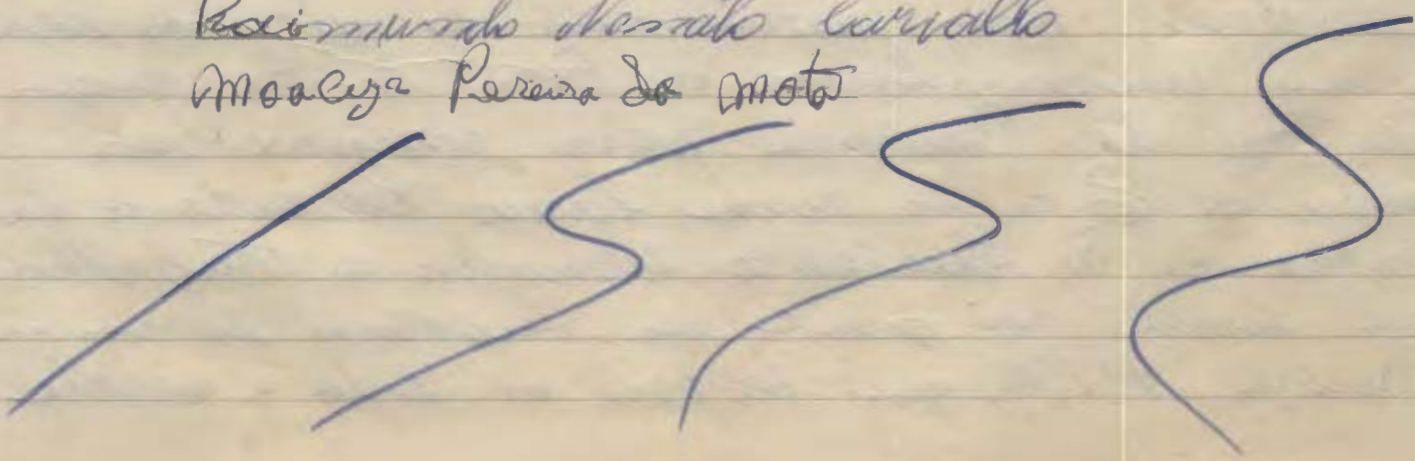 Raimundo Nonato Carvalho
Pereira da Mota